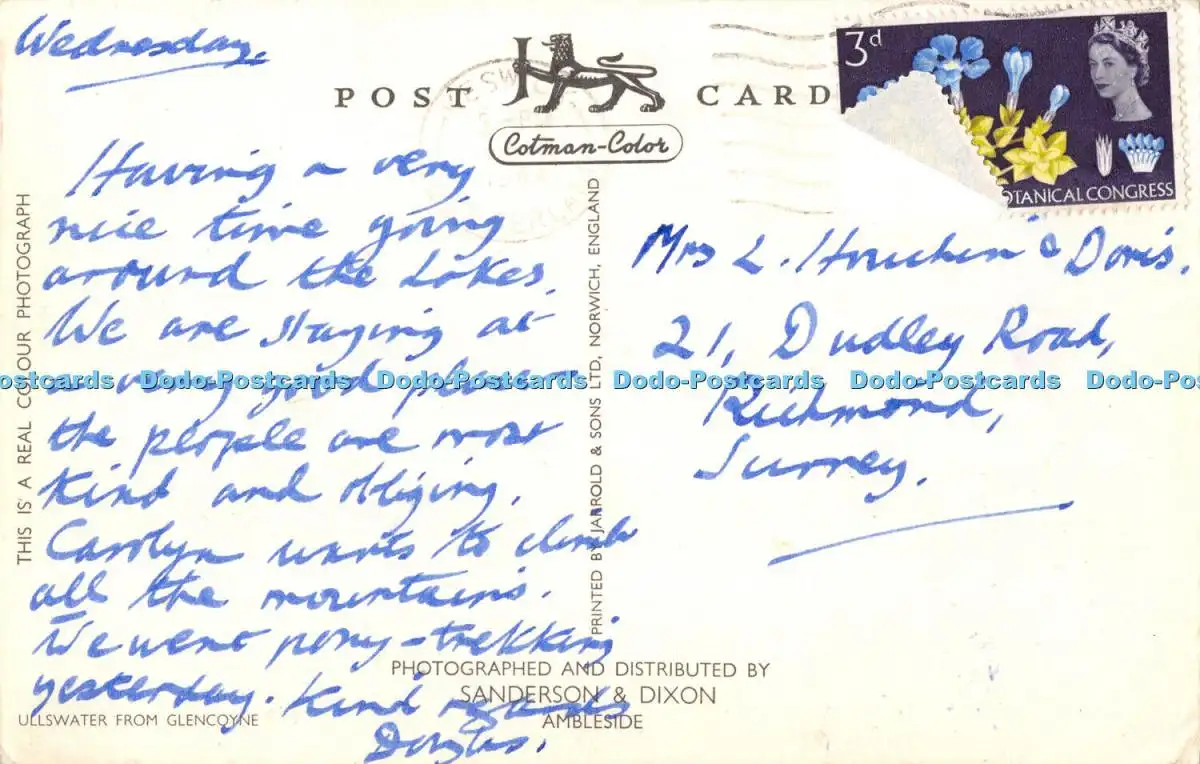 Wednesday.
POST CARD
Cotman-Color
3d
BOTANICAL CONGRESS
Having a very
nice time going
around the Lakes.
We are staying at
a very good place
the people are most
kind and obliging.
Carolyn wants to climb
all the mountains.
We went pony-trekking
yesterday. Kind regards
Douglas.
Mrs L. Houchen & Doris.
21, Dudley Road,
Richmond,
Surrey.
THIS IS A REAL COLOUR PHOTOGRAPH
PRINTED BY JARROLD & SONS LTD, NORWICH, ENGLAND
PHOTOGRAPHED AND DISTRIBUTED BY
SANDERSON & DIXON
AMBLESIDE
ULLSWATER FROM GLENCOYNE
Dodo-Postcards Dodo-Postcards Dodo-Postcards Dodo-Postcards Dodo-Postcards Dodo-Postcards